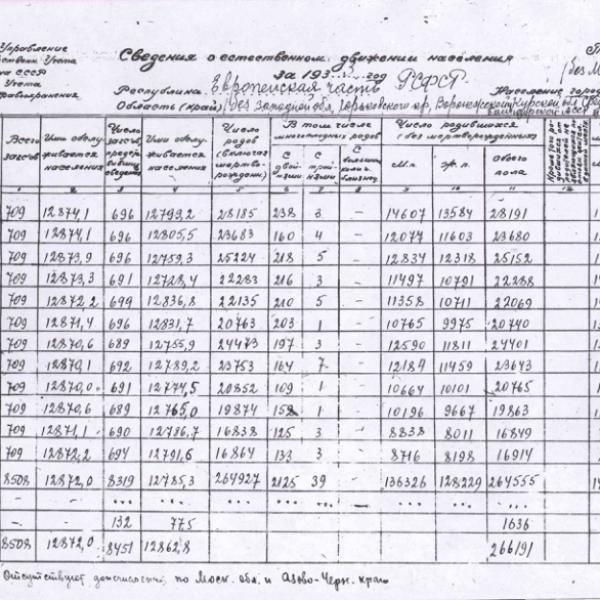 Управление
Учета
на СССР
Учета
Сведения о естественном движении населения
за 193 год
Республика Европейская часть РСФСР
Область (край) (без Западной обл., Горьковского кр., Воронежской, Курской обл.
Население город
(без М
Всего загсов
Ими обслуживается населения
Число загсов, сведения
Ими обслуживается населения
Число родов (включая мертворождени)
В том числе многоплодных родов
С двойнями
С тройнями
С большим колич. близнец
Число родившихся (без мертворожденных)
М.п.
Ж.п.
Обоего пола
1 2 3 4 5 6 7 8 9 10 11 12
709 12874,1 696 12793,2 28185 238 3 – 14607 13584 28191
709 12874,1 696 12805,5 23683 160 4 – 12077 11603 23680
709 12873,9 696 12759,3 25224 218 5 – 12834 12318 25152
709 12873,3 691 12728,4 22283 216 3 – 11497 10791 22288
709 12872,2 699 12836,8 22135 210 5 – 11358 10711 22069
709 12871,4 696 12831,7 20763 203 1 – 10765 9975 20740
709 12870,6 689 12755,9 24473 197 3 – 12590 11811 24401
709 12870,1 692 12789,2 23753 164 7 – 12184 11459 23643
709 12870,0 691 12774,5 20852 109 1 – 10664 10101 20765
709 12870,6 689 12765,0 19874 158 1 – 10196 9667 19863
709 12871,1 690 12786,7 16838 125 3 – 8838 8011 16849
709 12872,2 694 12791,6 16864 133 3 – 8716 8198 16914
8508 12872,0 8319 12785,3 264927 2125 39 – 136326 128229 264555
– ... ... ... ... ... ... – ... ... ...
–. – 132 775 1636
8508 12872,0 8451 12862,8 266191
Отсутствуют по Моск. обл. и Азово-Черн. краю